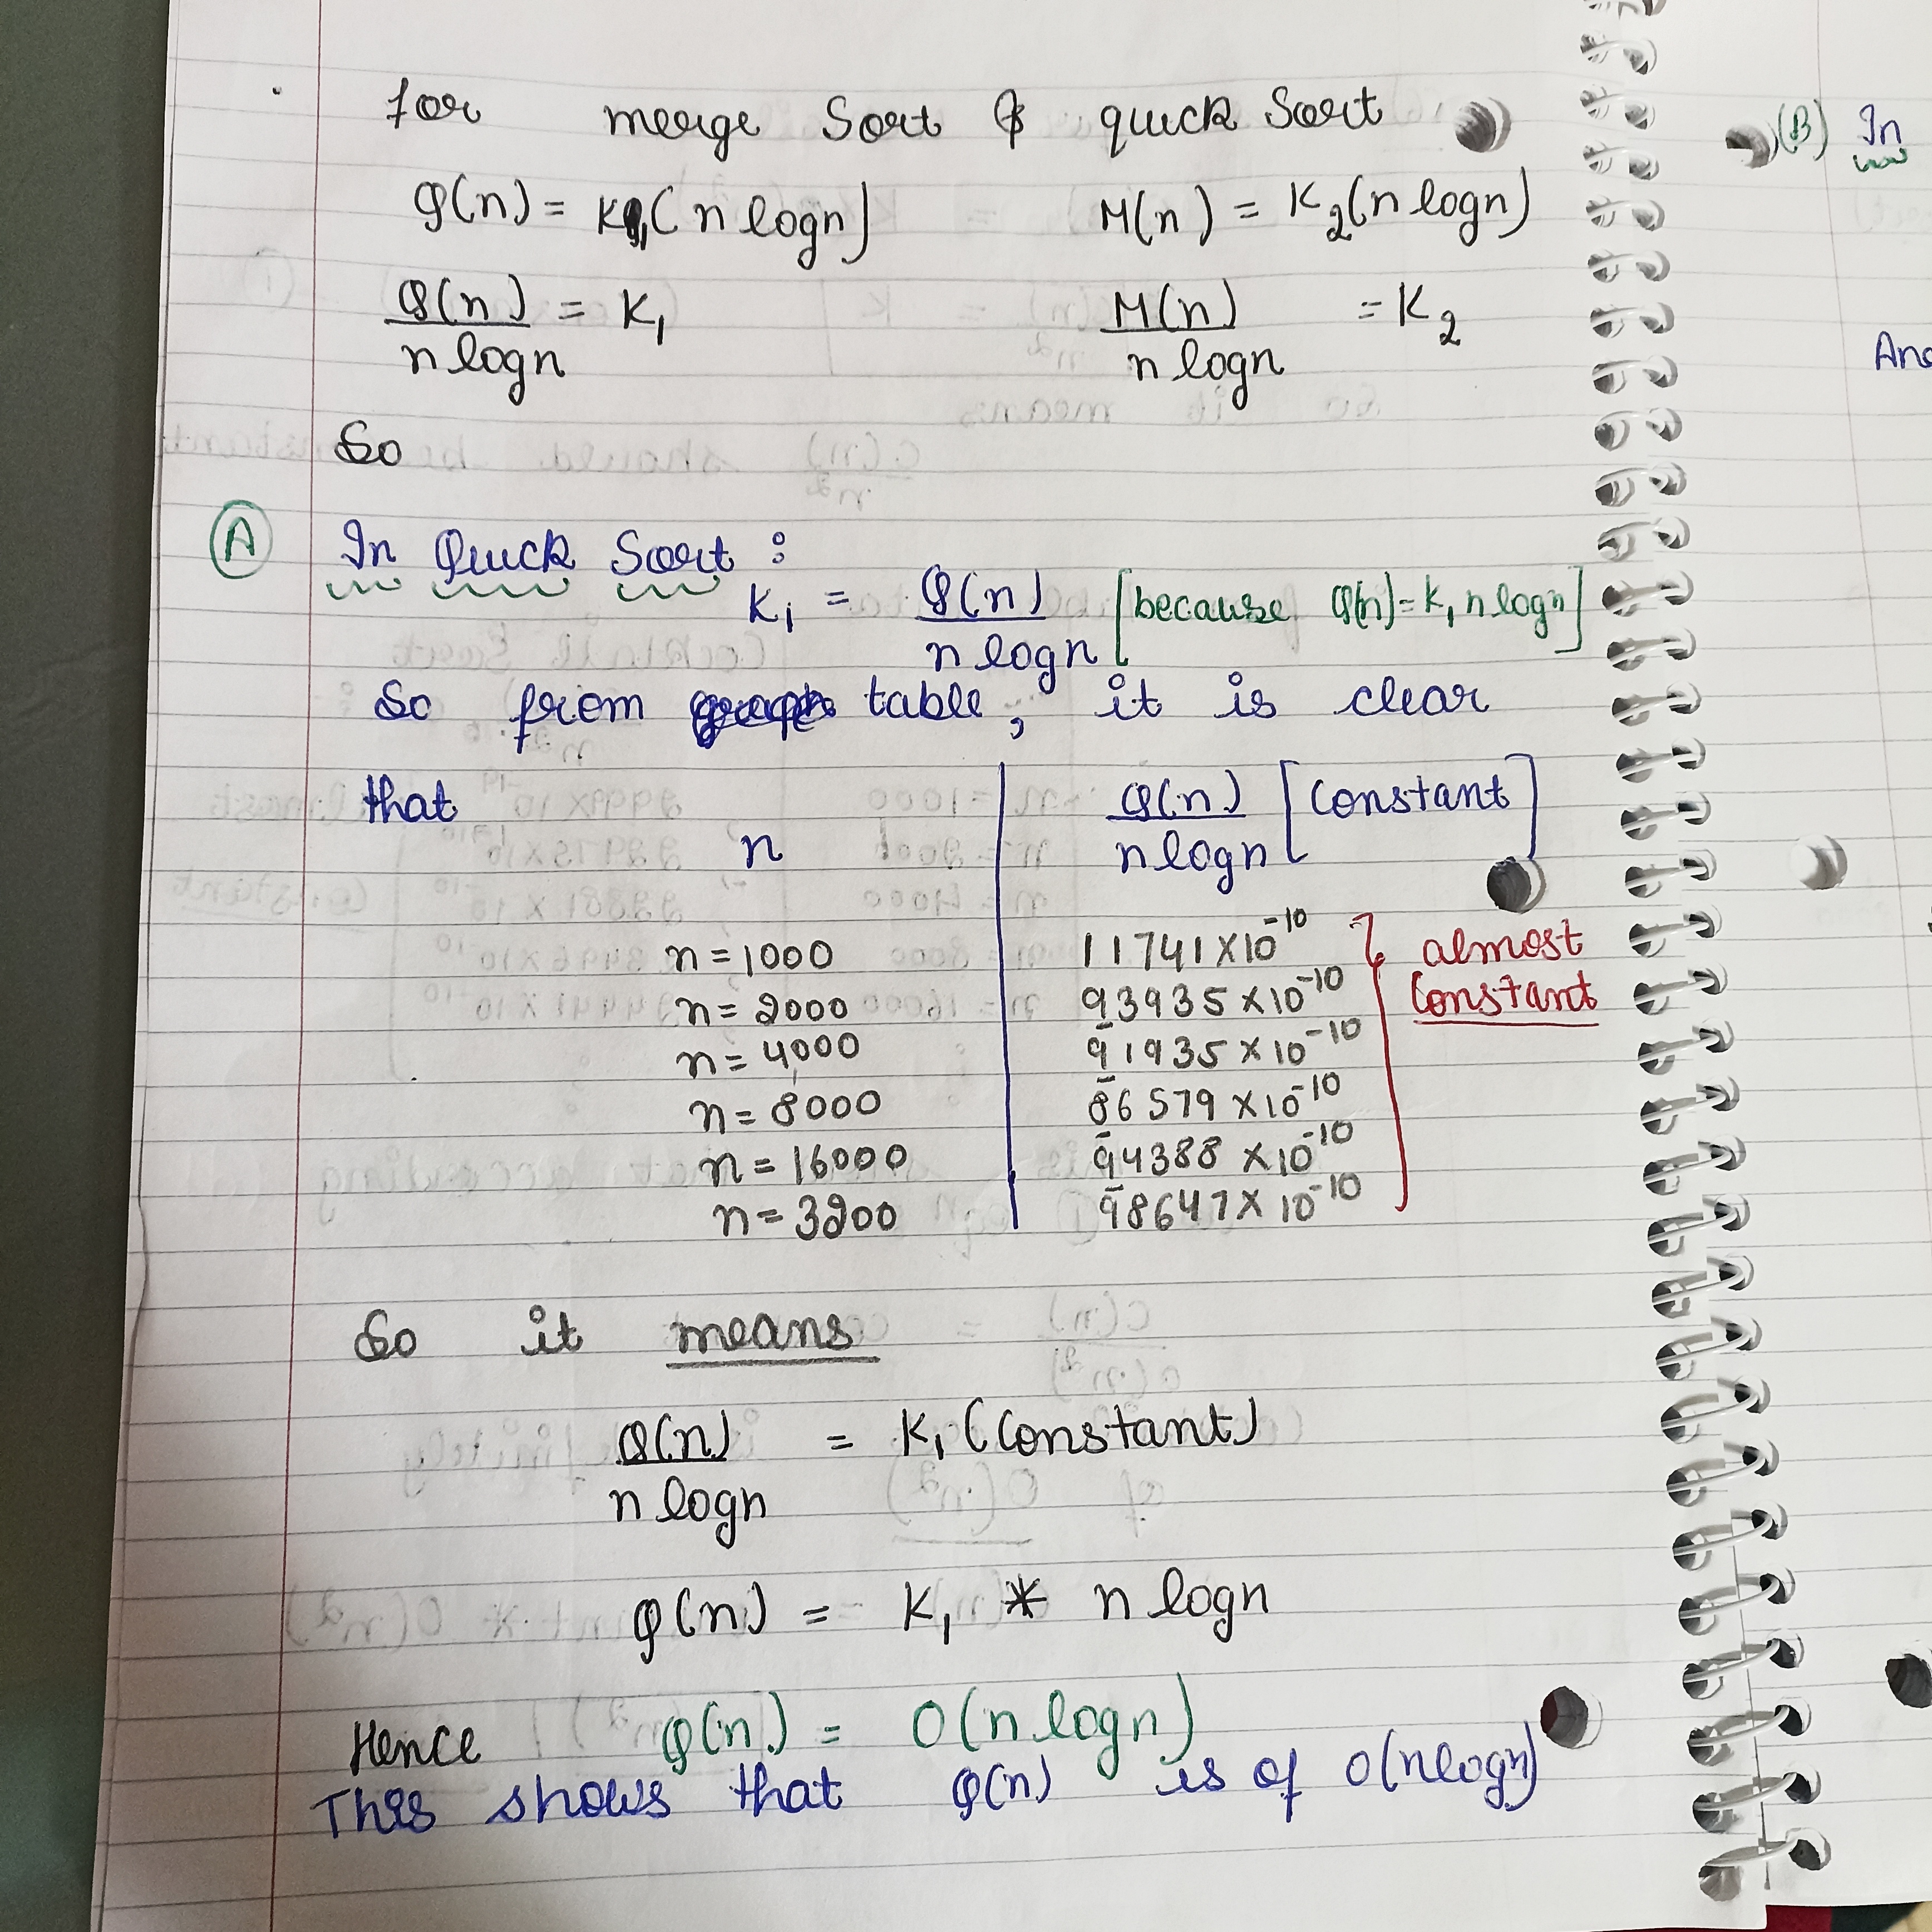 for merge Sort & quick Sort
Q(n) = K1 (n logn) M(n) = K2 (n logn)
Q(n) / n logn = K1 M(n) / n logn = K2
So
(A) In Quick Sort :
K1 = Q(n) / n logn [because Q(n) = K1 n logn]
So from table, it is clear
that
n | Q(n) / n logn [Constant]
n = 1000 | 11741 × 10^-10
n = 2000 | 93935 × 10^-10
n = 4000 | 91935 × 10^-10
n = 8000 | 86579 × 10^-10
n = 16000 | 94388 × 10^-10
n = 3200 | 98647 × 10^-10
} almost
constant
So it means
Q(n) / n logn = K1 (Constant)
Q(n) = K1 * n logn
Hence Q(n) = O(n logn)
This shows that Q(n) is of O(nlogn)
(B) In